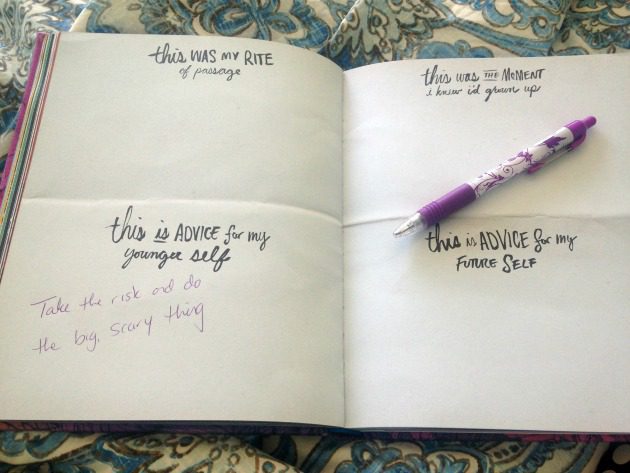 this WAS MY RITE
of passage
this is ADVICE for my
younger self
Take the risk and do
the big, scary thing
this was THE MOMENT
i knew i'd grown up
this is ADVICE for my
FUTURE SELF